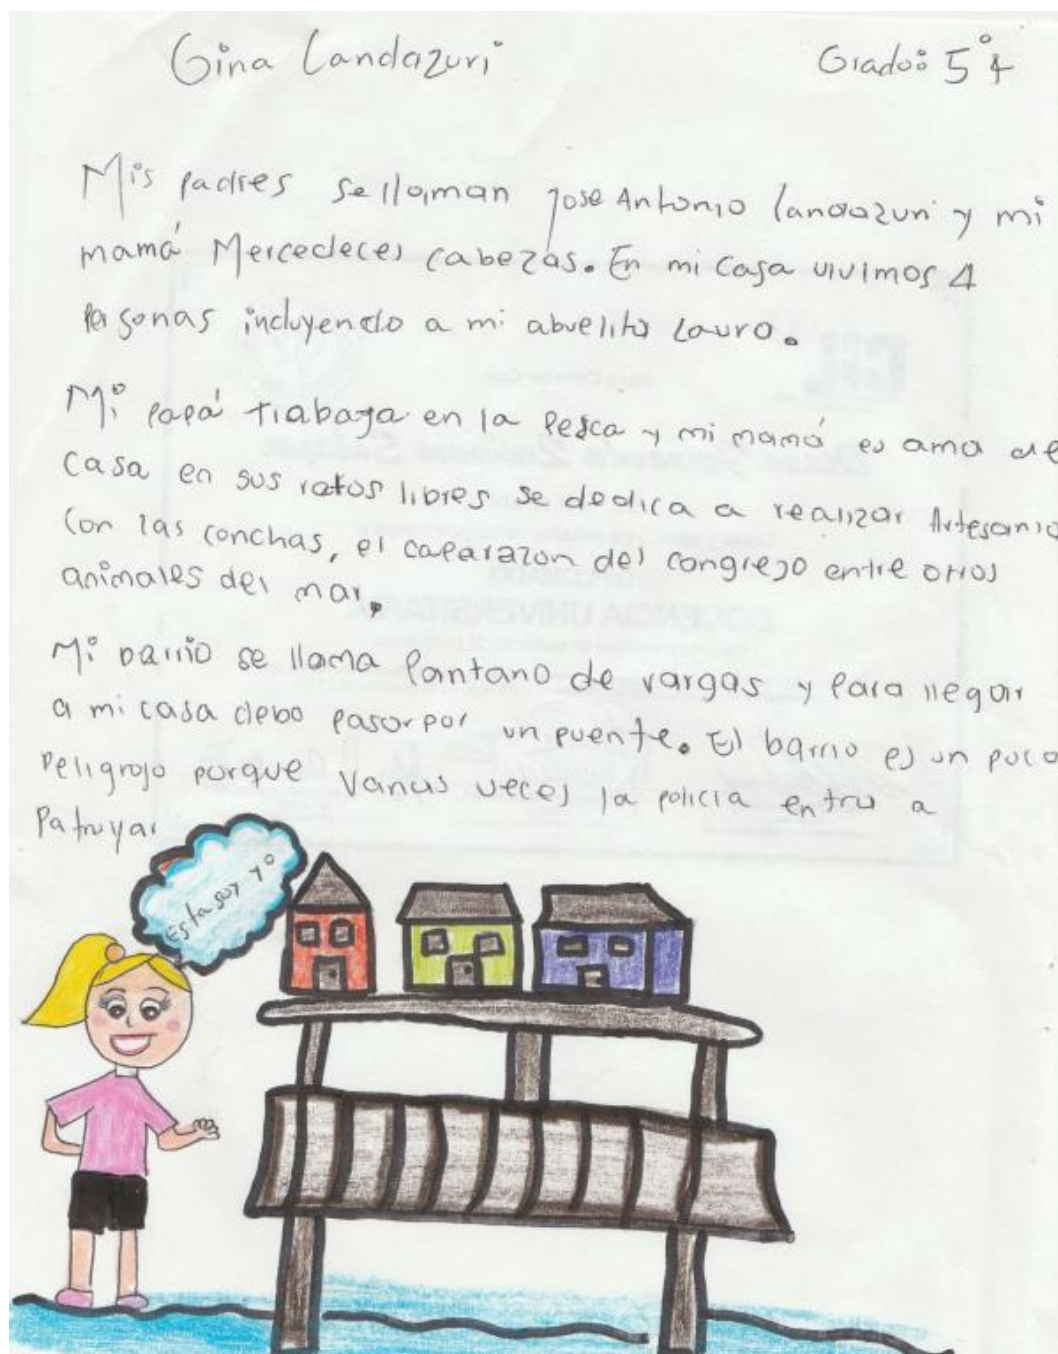 Gina Landazuri
Grado: 5°4
Mis padres se llaman jose Antonio landazuri y mi
mamá Mercedeces cabezas. En mi casa vivimos 4
personas incluyendo a mi abuelito Lauro.
Mi papá trabaja en la pesca y mi mamá es ama de
casa en sus ratos libres se dedica a realizar Artesania
con las conchas, el caparazon del congrejo entre otros
animales del mar.
Mi barrio se llama Pantano de vargas y para llegar
a mi casa debo pasar por un puente. El barrio es un poco
peligroso porque varias veces la policia entra a
Patruyar
Esta soy yo
DOCENCIA UNIVERSITARIA